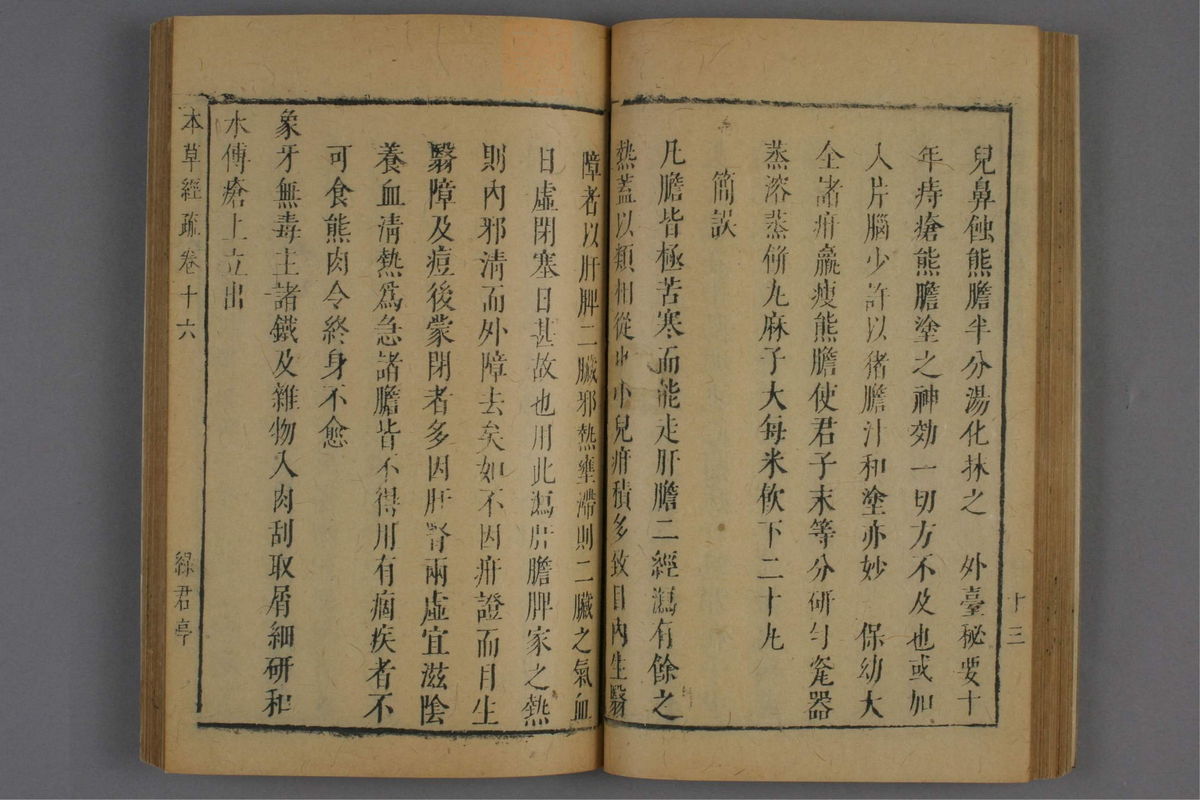 兒鼻蝕熊膽半分湯化抹之　外臺秘要十
年痔瘡熊膽塗之神効一切方不及也或加
入片腦少許以猪膽汁和塗亦妙　保幼大
全諸疳羸瘦熊膽使君子末等分研勻甆器
蒸溶蒸餅丸麻子大每米飲下二十丸
簡誤
凡膽皆極苦寒而能走肝膽二經瀉有餘之
熱蓋以類相從也小兒疳積多致目內生翳
十三
障者以肝脾二臟邪熱壅滯則二臟之氣血
日虛閉塞日甚故也用此瀉肝膽脾家之熱
則內邪清而外障去矣如不因疳證而目生
翳障及痘後蒙閉者多因肝腎兩虛宜滋陰
養血清熱爲急諸膽皆不得用有痼疾者不
可食熊肉令終身不愈
象牙無毒主諸鐵及雜物入肉刮取屑細研和
水傅瘡上立出
本草經疏卷十六　綠君亭